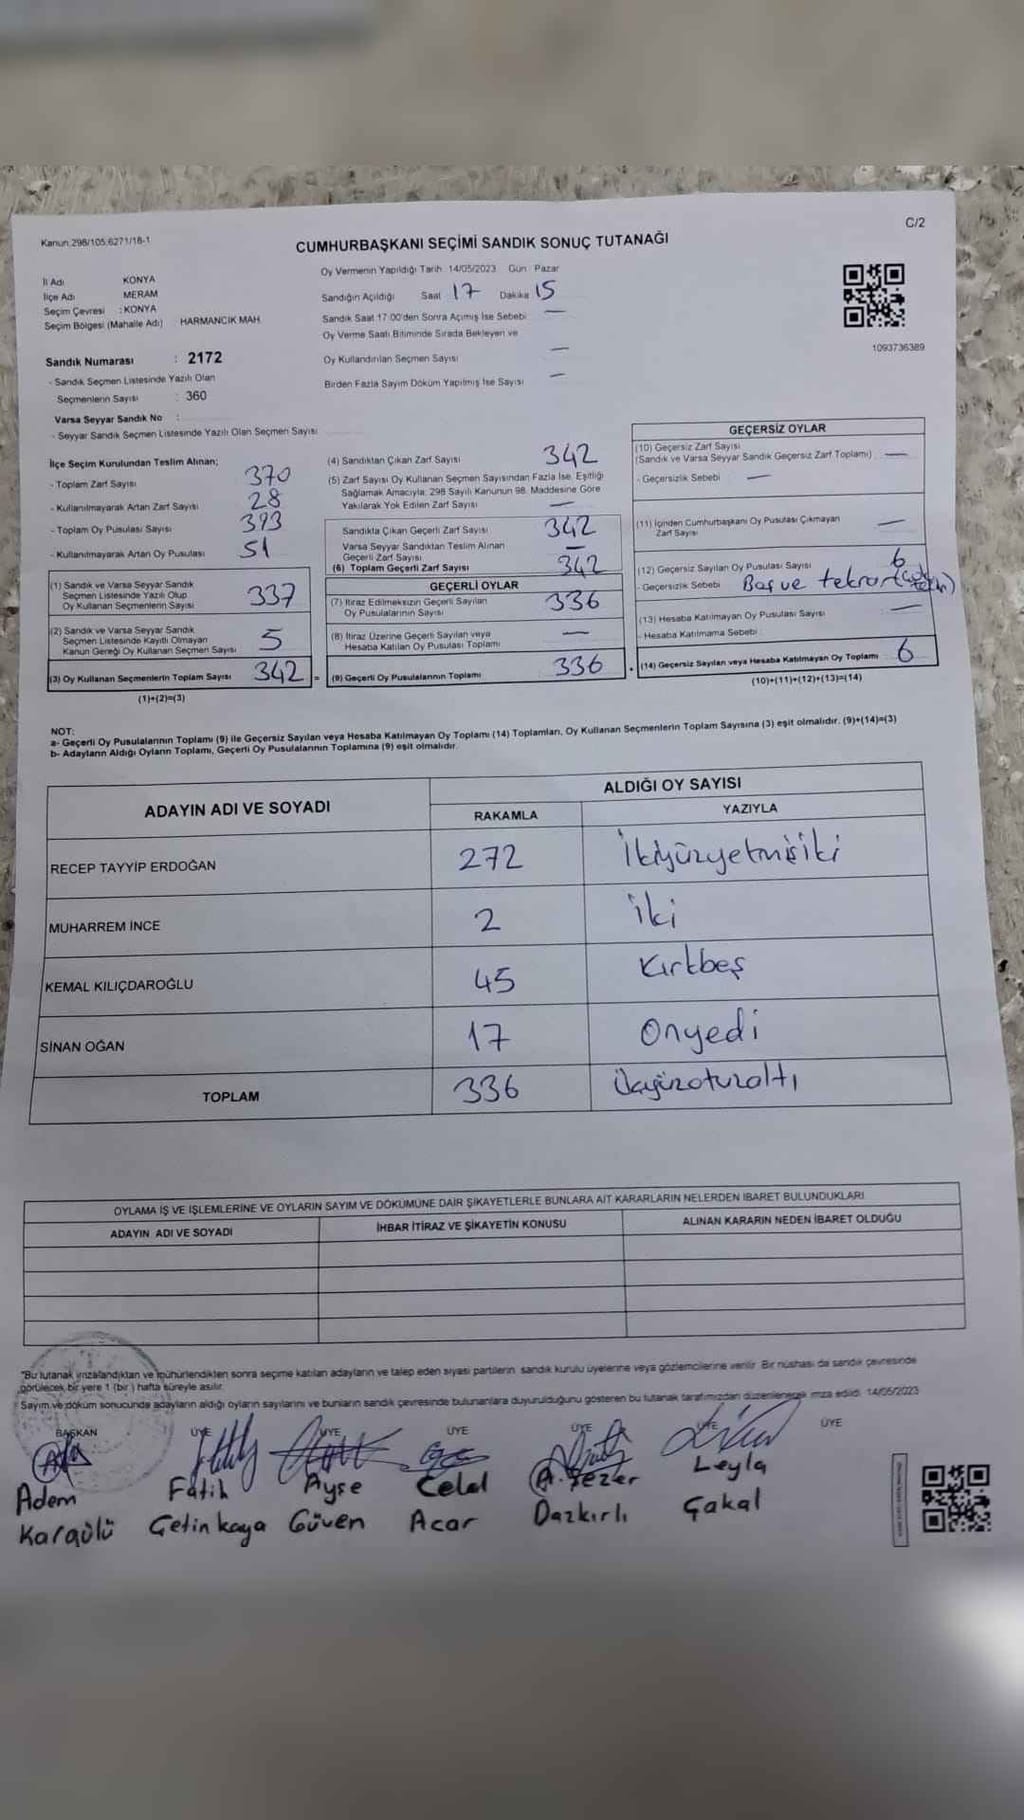 Kanun:298/105;6271/18-1
C/2
CUMHURBAŞKANI SEÇİMİ SANDIK SONUÇ TUTANAĞI
İl Adı KONYA
İlçe Adı MERAM
Seçim Çevresi : KONYA
Seçim Bölgesi (Mahalle Adı) HARMANCIK MAH.
Sandık Numarası : 2172
- Sandık Seçmen Listesinde Yazılı Olan
Seçmenlerin Sayısı : 360
Varsa Seyyar Sandık No :
- Seyyar Sandık Seçmen Listesinde Yazılı Olan Seçmen Sayısı
Oy Vermenin Yapıldığı Tarih 14/05/2023 Gün Pazar
Sandığın Açıldığı Saat 17 Dakika 15
Sandık Saat 17:00'den Sonra Açımış İse Sebebi —
Oy Verme Saati Bitiminde Sırada Bekleyen ve
Oy Kullandırılan Seçmen Sayısı —
Birden Fazla Sayım Döküm Yapılmış İse Sayısı —
1093736389
İlçe Seçim Kurulundan Teslim Alınan;
- Toplam Zarf Sayısı 370
- Kullanılmayarak Artan Zarf Sayısı 28
- Toplam Oy Pusulası Sayısı 393
- Kullanılmayarak Artan Oy Pusulası 51
(1) Sandık ve Varsa Seyyar Sandık
Seçmen Listesinde Yazılı Olup
Oy Kullanan Seçmenlerin Sayısı 337
(2) Sandık ve Varsa Seyyar Sandık
Seçmen Listesinde Kayıtlı Olmayan
Kanun Gereği Oy Kullanan Seçmen Sayısı 5
(3) Oy Kullanan Seçmenlerin Toplam Sayısı 342 =
(1)+(2)=(3)
(4) Sandıktan Çıkan Zarf Sayısı 342
(5) Zarf Sayısı Oy Kullanan Seçmen Sayısından Fazla İse, Eşitliği
Sağlamak Amacıyla, 298 Sayılı Kanunun 98. Maddesine Göre
Yakılarak Yok Edilen Zarf Sayısı —
Sandıkta Çıkan Geçerli Zarf Sayısı 342
Varsa Seyyar Sandıktan Teslim Alınan
Geçerli Zarf Sayısı —
(6) Toplam Geçerli Zarf Sayısı 342
GEÇERLİ OYLAR
(7) İtiraz Edilmeksizin Geçerli Sayılan
Oy Pusulalarının Sayısı 336
(8) İtiraz Üzerine Geçerli Sayılan veya
Hesaba Katılan Oy Pusulası Toplamı —
(9) Geçerli Oy Pusulalarının Toplamı 336 +
GEÇERSİZ OYLAR
(10) Geçersiz Zarf Sayısı
(Sandık ve Varsa Seyyar Sandık Geçersiz Zarf Toplamı) —
- Geçersizlik Sebebi —
(11) İçinden Cumhurbaşkanı Oy Pusulası Çıkmayan
Zarf Sayısı —
(12) Geçersiz Sayılan Oy Pusulası Sayısı 6
- Geçersizlik Sebebi Boş ve tekrar
(13) Hesaba Katılmayan Oy Pusulası Sayısı —
- Hesaba Katılmama Sebebi
(14) Geçersiz Sayılan veya Hesaba Katılmayan Oy Toplamı 6
(10)+(11)+(12)+(13)=(14)
NOT:
a- Geçerli Oy Pusulalarının Toplamı (9) ile Geçersiz Sayılan veya Hesaba Katılmayan Oy Toplamı (14) Toplamları, Oy Kullanan Seçmenlerin Toplam Sayısına (3) eşit olmalıdır. (9)+(14)=(3)
b- Adayların Aldığı Oyların Toplamı, Geçerli Oy Pusulalarının Toplamına (9) eşit olmalıdır.
ADAYIN ADI VE SOYADI ALDIĞI OY SAYISI
RAKAMLA YAZIYLA
RECEP TAYYİP ERDOĞAN 272 İkiyüzyetmişiki
MUHARREM İNCE 2 iki
KEMAL KILIÇDAROĞLU 45 Kırkbeş
SİNAN OĞAN 17 Onyedi
TOPLAM 336 Üçyüzotuzaltı
OYLAMA İŞ VE İŞLEMLERİNE VE OYLARIN SAYIM VE DÖKÜMÜNE DAİR ŞİKAYETLERLE BUNLARA AİT KARARLARIN NELERDEN İBARET BULUNDUKLARI
ADAYIN ADI VE SOYADI İHBAR İTİRAZ VE ŞİKAYETİN KONUSU ALINAN KARARIN NEDEN İBARET OLDUĞU
"Bu tutanak imzalandıktan ve mühürlendikten sonra seçime katılan adayların ve talep eden siyasi partilerin sandık kurulu üyelerine veya gözlemcilerine verilir. Bir nüshası da sandık çevresinde
görülecek bir yere 1 (bir) hafta süreyle asılır.
Sayım ve döküm sonucunda adayların aldığı oyların sayılarını ve bunların sandık çevresinde bulunanlara duyurulduğunu gösteren bu tutanak tarafımızdan düzenlenerek imza edildi. 14/05/2023
BAŞKAN ÜYE ÜYE ÜYE ÜYE ÜYE ÜYE
Adem Fatih Ayşe Celal A. Sezer Leyla
Kargülü Çetinkaya Güven Acar Dazkırlı Çakal